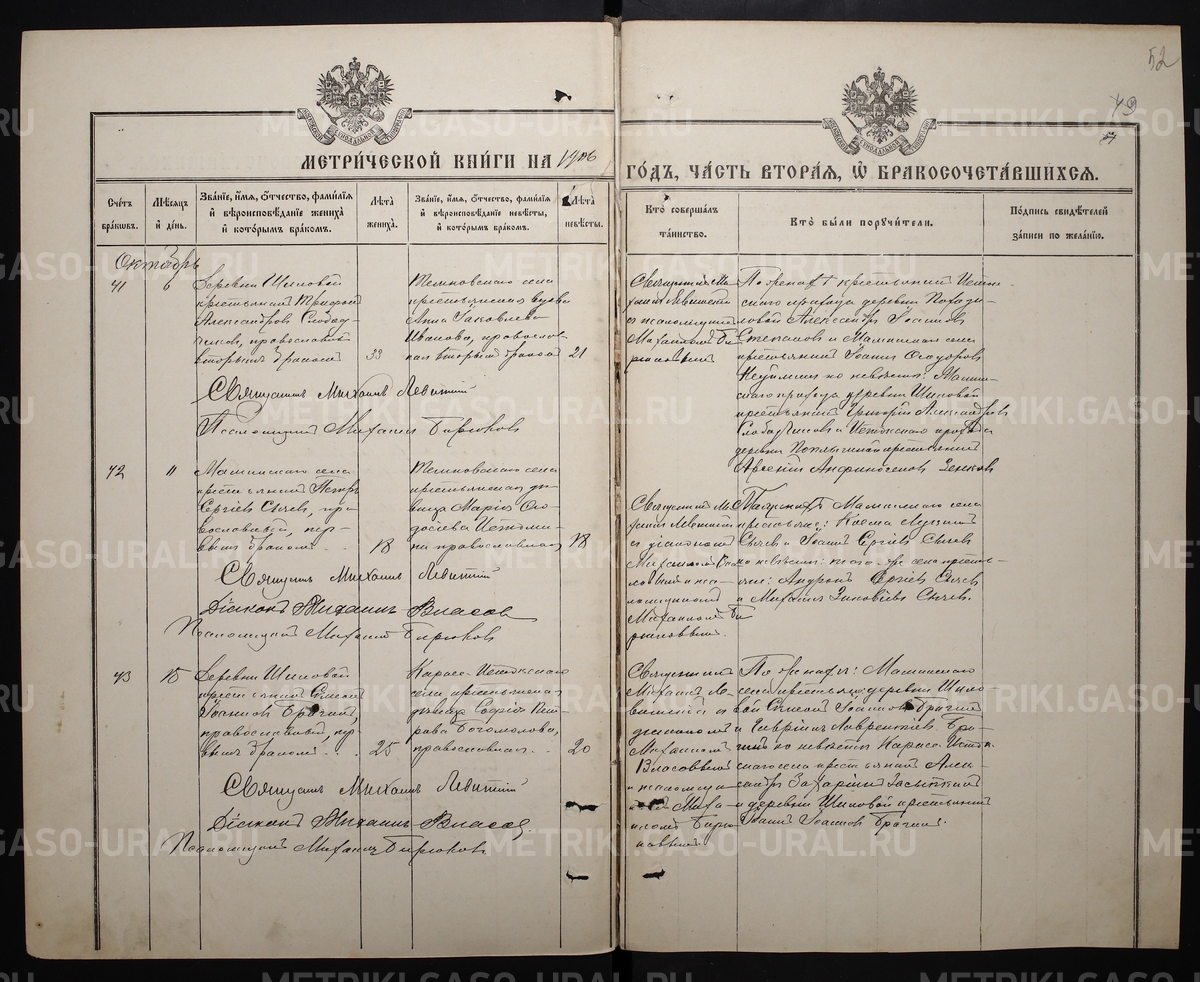 52
49
МЕТРИ́ЧЕСКОЙ КНИ́ГИ НА 1906
ГО́ДЪ, ЧА́СТЬ ВТОРА́Я, Ѡ БРАКОСОЧЕТА́ВШИХСЯ.
Сче́тъ бра́кωвъ.
Мѣ́сяцъ и҆ де́нь.
Зва́нїе, и҆́мя, ѻ҆́тчество, фами́лїя и҆ вѣроисповѣ́данїе жениха̀ и҆ кото́рымъ бра́комъ.
Лѣ́та жениха̀.
Зва́нїе, и҆́мя, ѻ҆́тчество, фами́лїя и҆ вѣроисповѣ́данїе невѣ́сты, и҆ кото́рымъ бра́комъ.
Лѣ́та невѣ́сты.
Кто̀ соверша́лъ та́инство.
Кто̀ бы́ли порꙋчи́тели.
По́дпись свидѣ́телей за́писи по жела́нїю.
Октябрь
41
6
Деревни Шиловой
крестьянин Трифон
Александров Слобод-
чиков, православный
вторым браком
33
села
крестьянская вдова
Анна Иаковлева
Иванова, православ-
ная вторым браком
21
Священник Ми-
хаил Левитский
с псаломщиком
Михаилом Би-
рюковым
По женихе крестьянин Исто-
скаго прихода деревни
Александр Иоаннов
Степанов и Маминскаго села
крестьянин Иоанн Феодоров
по невесте: Мамин-
скаго прихода деревни Шиловой
крестьянин Григорий Александров
Слободчиков и прихода
деревни крестьянин
Арсений Анфиногенов
Священник Михаил Левитский
Псаломщик Михаил Бирюков
42
11
Маминскаго села
крестьянин Петр
Сергиев Сычев, пра-
вославный, пер-
вым браком
18
села
крестьянская де-
вица Мария Фео-
досиева Истоми-
на православная
18
Священник Ми-
хаил Левитский
с диаконом
Михаилом Вла-
совым и пса-
ломщиком
Михаилом Би-
рюковым.
По женихе Маминскаго села
крестьяне: Косма
Сычев и Иоанн Сергиев Сычев
по невесте: того-же села крестья-
не: Андрей Сергиев Сычев
и Михаил Зиновиев Сычев.
Священник Михаил Левитский
Диакон Михаил Власов
Псаломщик Михаил Бирюков
43
15
Деревни Шиловой
крестьянин Симеон
Иоаннов Брагин,
православный, пер-
вым браком
25
Карасье-Истокскаго
села крестьянская
девица София Пет-
рова Богомолова,
православная
20
Священник
Михаил Ле-
витский с
диаконом
Михаилом
Власовым
и псаломщи-
ком Миха-
илом Бирю-
ковым.
По женихе: Маминскаго
села крестьяне деревни Шило-
вой Симеон Иоаннов Брагин
и Гавриил Лаврентиев Бра-
гин по невесте Карасье-Исток-
скаго села крестьянин Алек-
сандр Захариин Засыпкин
и деревни Шиловой крестьянин
Иоанн Иоаннов Брагин.
Священник Михаил Левитский
Диакон Михаил Власов
Псаломщик Михаил Бирюков
METRIKI.GASO-URAL.RU